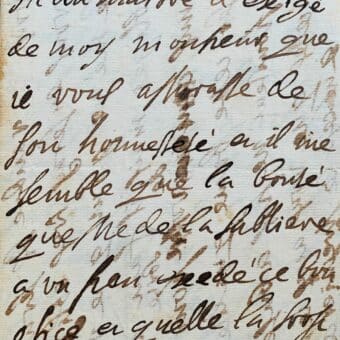 exige
de moy monsieur que
je vous assurasse de
son honnesteté et il me
semble que la bonté
que Me de la Sabliere
a vous de ce bon
office et quelle la